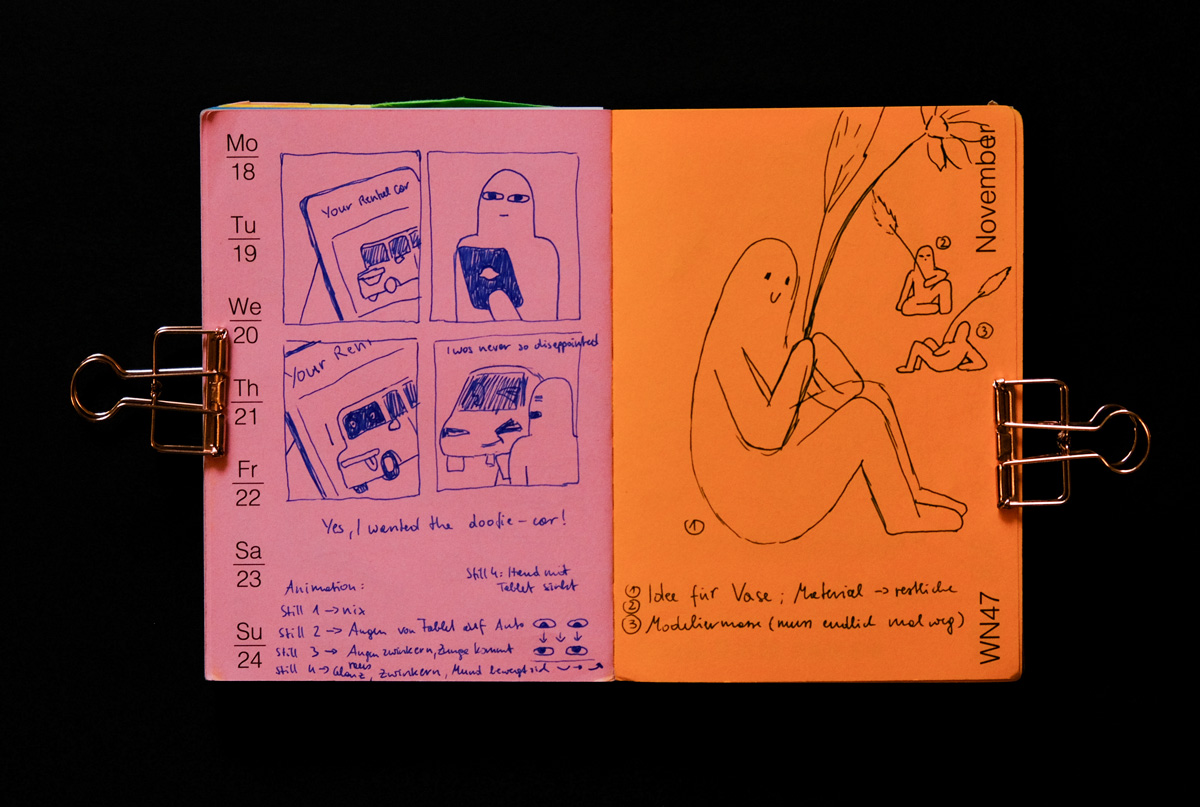 Mo
18
Tu
19
We
20
Th
21
Fr
22
Sa
23
Su
24
Your Rental car
Your Rent
I was never so disappointed
Yes, I wanted the doofie-car!
Animation:
Still 1 → nix
Still 2 → Augen von Tablet auf Auto
Still 3 → Augen zwinkern, Zunge kommt
raus
Still 4 → Glanz, zwinkern, Mund bewegt sich
Still 4: Hand mit
Tablet sinkt
November
②
③
①
① Idee für Vase; Material → restliche
②
③ Modeliermasse (muss endlich mal weg)
WN47